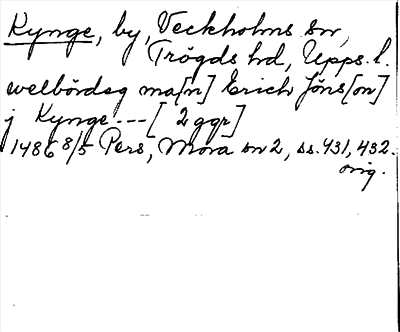 Kynge, by, Veckholms sn,
Trögds hd, Upps. l.
welbördog ma[n] Erich Jöns[on]
j Kynge --- [2 ggr]
1486 8/5 Pers, Mora sn 2, ss. 431, 432.
orig.